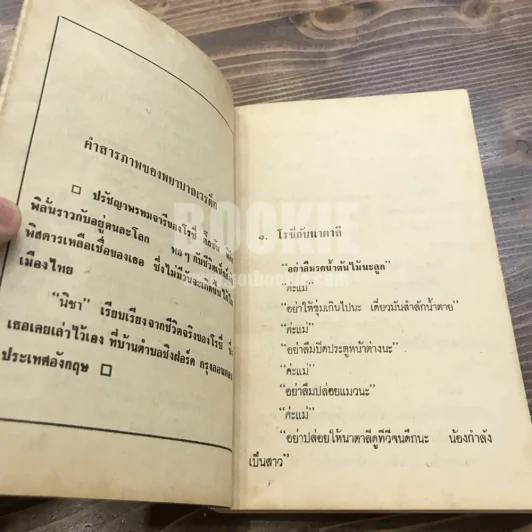 คำสารภาพของพยาบาลเวรดึก
□ ปรัชญาพรหมจารีของโรซี่
พิลั่นราวกับอยู่คนละโลก พอๆ กับชีวิต
พิสดารเหลือเชื่อของเธอ ซึ่งไม่มีวันจะเกิดขึ้น
เมืองไทย
"นิชา" เรียบเรียงจากชีวิตจริงของโรซี่
เธอเคยเล่าไว้เอง ที่บ้านตำบลชิงฟอร์ด กรุงลอนดอน
ประเทศอังกฤษ □
BOOKIE
๑. โรซี่กับนาตาลี
"อย่าลืมรดน้ำต้นไม้นะลูก"
"ค่ะแม่"
"อย่าให้ชุ่มเกินไปนะ เดี๋ยวมันสำลักน้ำตาย"
"ค่ะแม่"
"อย่าลืมปิดประตูหน้าต่างนะ"
"ค่ะแม่"
"อย่าลืมปล่อยแมวนะ"
"ค่ะแม่"
"อย่าปล่อยให้นาตาลีดูทีวีจนดึกนะ น้องกำลัง
เป็นสาว"